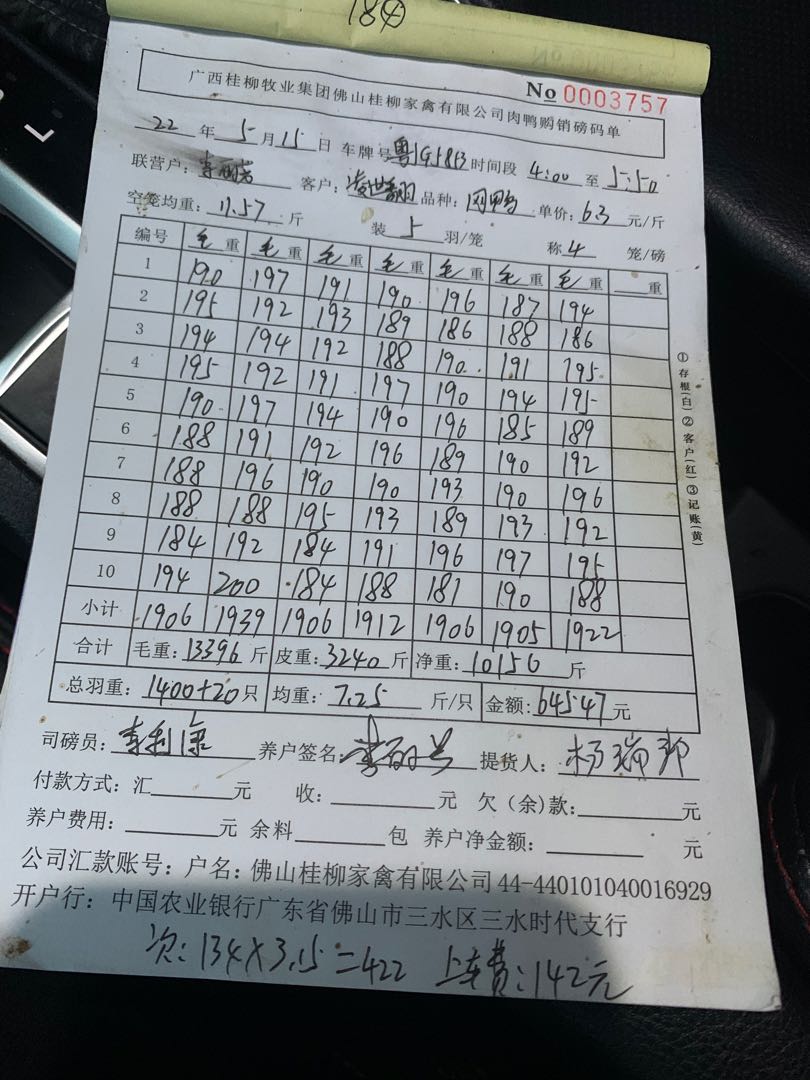 184
广西桂柳牧业集团佛山桂柳家禽有限公司肉鸭购销磅码单
No 0003757
22 年 5 月 15 日 车牌号 粤 时间段 4:00 至 5:50
联营户: 客户: 品种: 鸭 单价: 6.3 元/斤
空笼均重: 11.57 斤 装 5 羽/笼 称 4 笼/磅
编号 毛重 毛重 毛重 毛重 毛重 毛重 毛重 重
1 190 197 191 190 196 187 194
2 195 192 193 189 186 188 186
3 194 194 192 188 190 191 195
4 195 192 191 197 190 194 195
5 190 197 194 190 196 185 189
6 188 191 192 196 189 190 192
7 188 196 190 190 193 190 196
8 188 188 195 193 189 193 192
9 184 192 184 191 196 197 195
10 194 200 184 188 181 190 188
小计 1906 1939 1906 1912 1906 1905 1922
合计 毛重: 13396 斤 皮重: 3240 斤 净重: 10156 斤
总羽重: 1400+20 只 均重: 7.25 斤/只 金额: 64547 元
司磅员: 李利康 养户签名: 提货人: 杨瑞邦
付款方式: 汇 元 收: 元 欠(余)款: 元
养户费用: 元 余料 包 养户净金额: 元
公司汇款账号: 户名: 佛山桂柳家禽有限公司 44-440101040016929
开户行: 中国农业银行广东省佛山市三水区三水时代支行
次: 134×3.15=422 上车费: 142元
①存根(白)②客户(红)③记账(黄)